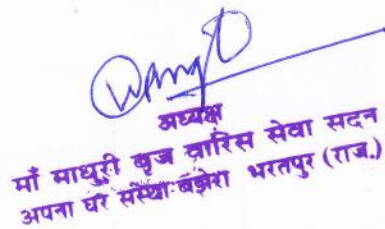 अध्यक्ष
माँ माधुरी बृज वारिस सेवा सदन
अपना घर संस्था बझेरा भरतपुर (राज.)